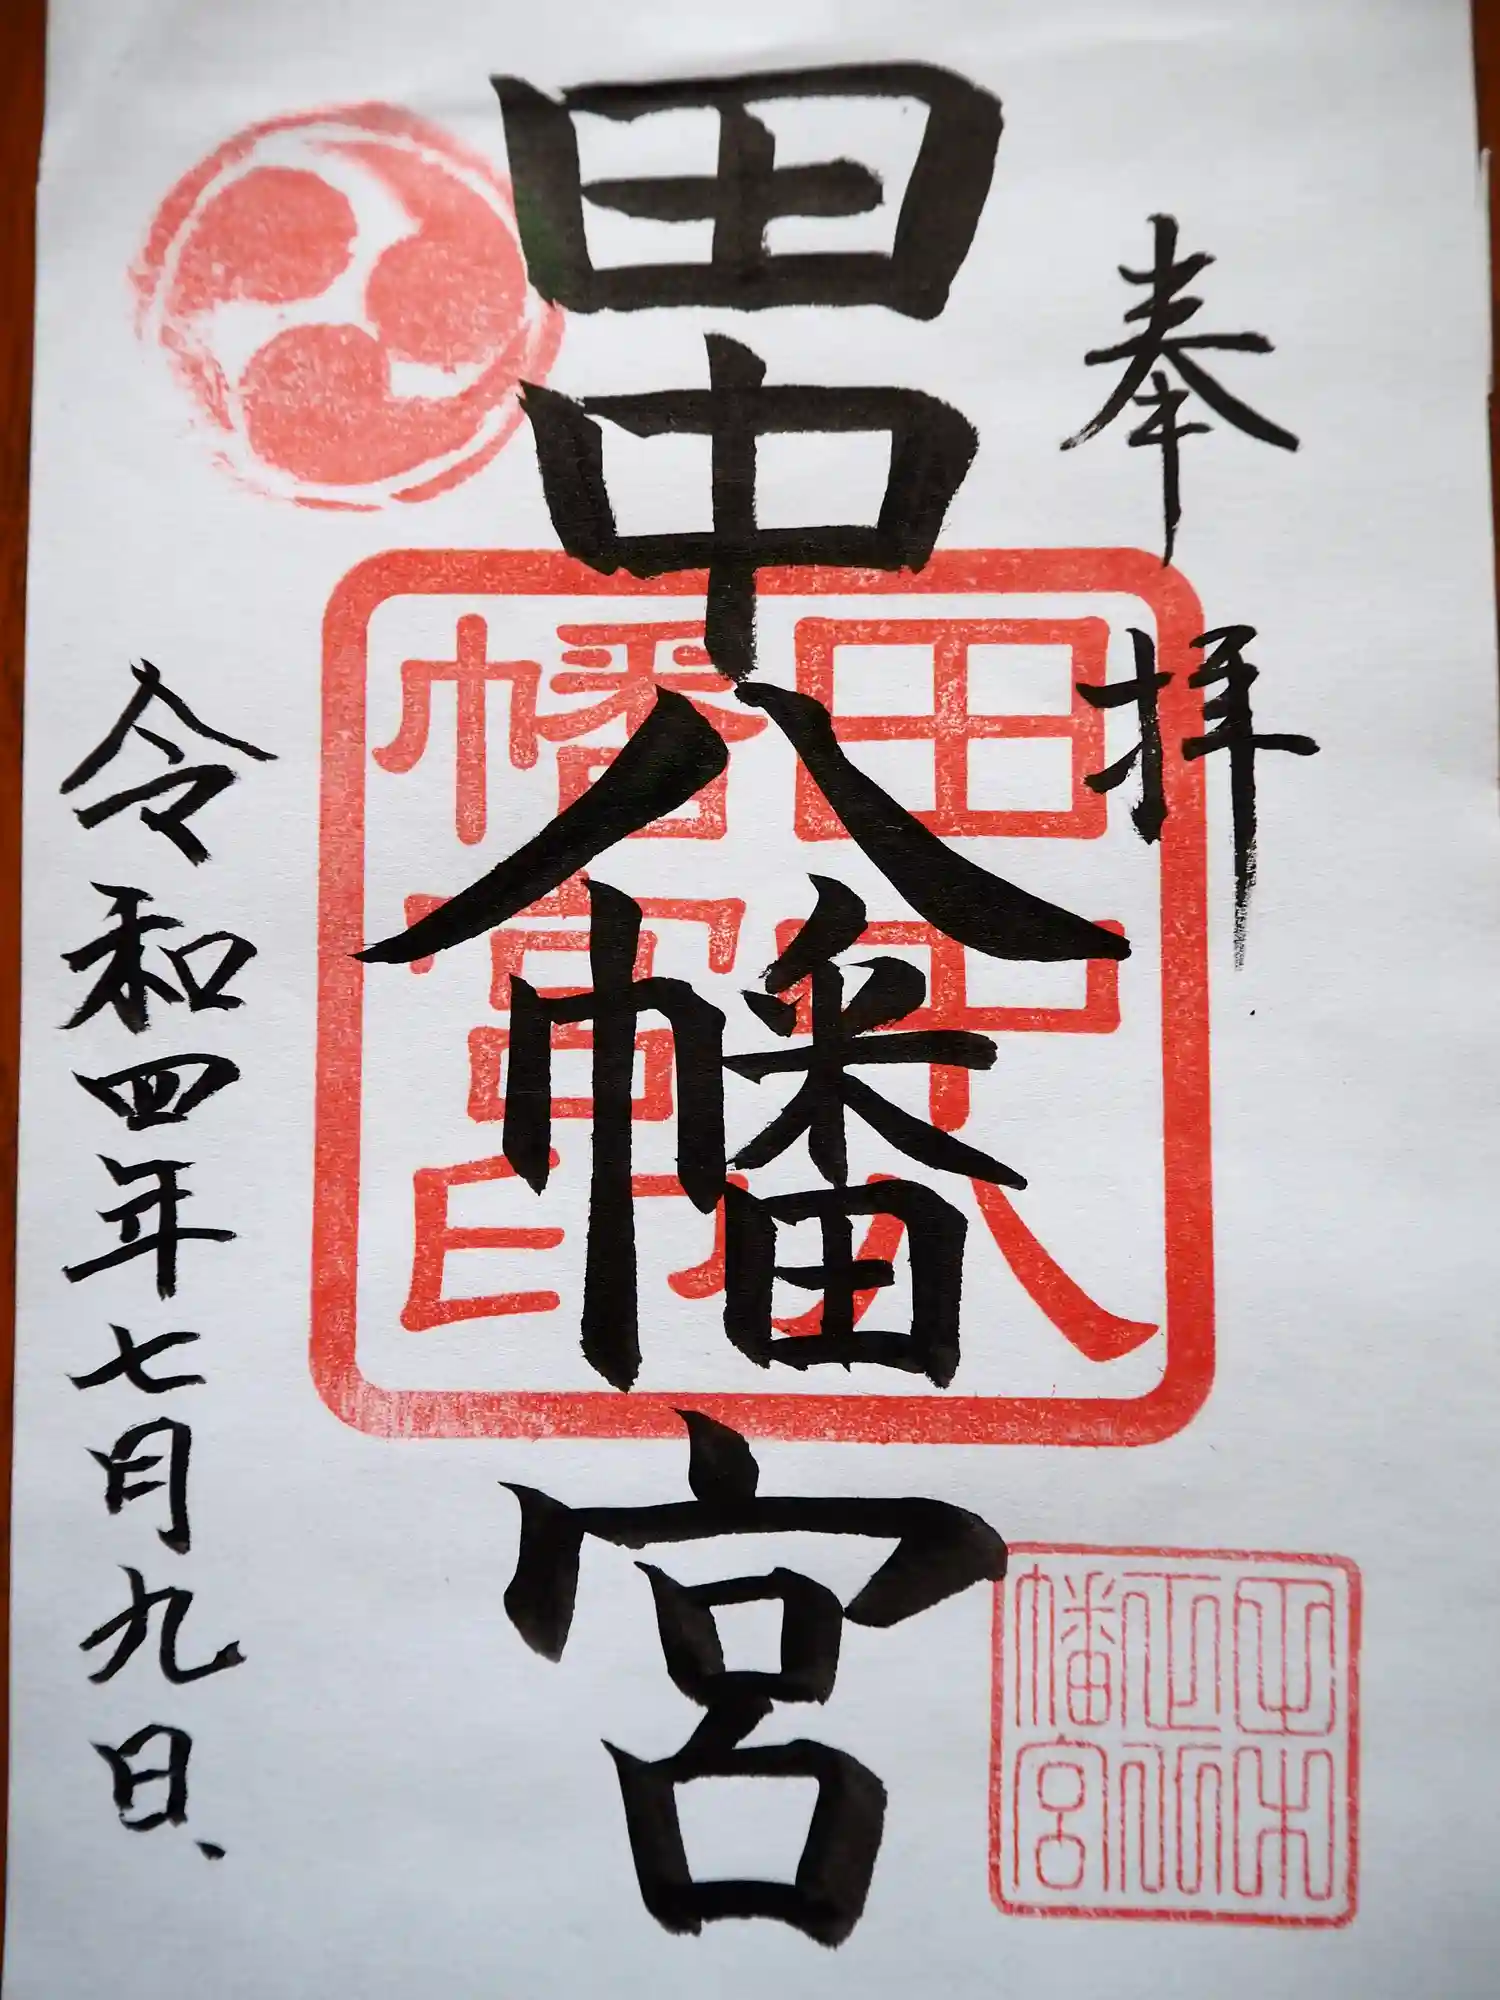 奉拝
田中八幡宮
田中八
幡宮印
令和四年七月九日
幡宮